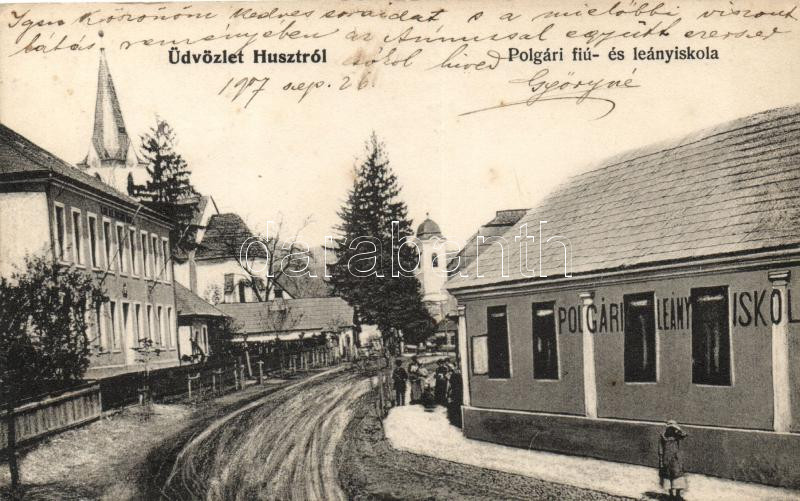 Igen köszönöm kedves soraidat s a mielőbbi viszont
látás reményében az Annussal együtt ezerszer
Üdvözlet Husztról
Polgári fiú- és leányiskola
csókol híved
1907 sep. 26.
Györyné
POLGÁRI LEÁNY ISKOL
darabanth